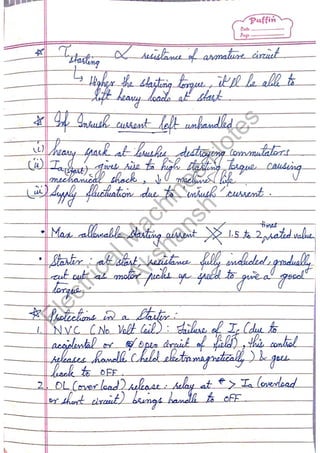 Puffin
Date
Page
* T starting ∝ resistance of armature circuit
↳ Higher the starting torque, it'll be able to
lift heavy loads at start
* If Inrush current left unhandled
(i) heavy spark at brushes destroying commutators
(ii) Ia(start) gives rise to high starting torque causing
mechanical shock, ↓ machine life
(iii) Supply fluctuation due to inrush current.
• Max allowable starting current >> 1.5 to 2 times rated value
• Starter: at start, resistance fully included, gradually
cut out as motor picks up speed to give a good
torque
* Protections in a Starter:
1. NVC (No Volt Coil): Failure of If (due to
accidental or open circuit of field), this control
releases handle (held electromagnetically) & goes
back to OFF.
2. OL (over load) release: relay at > Ia (overload
or short circuit) brings handle to OFF
Electrical Machines Notes